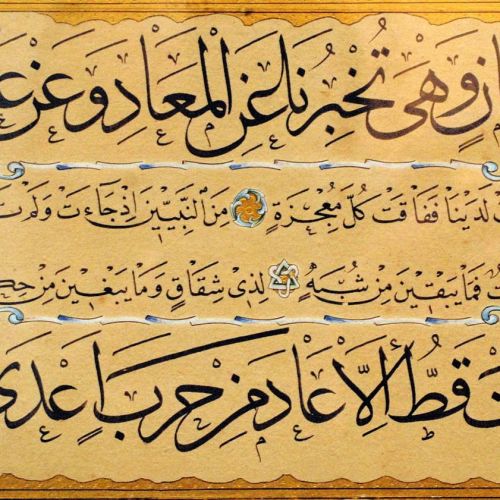 ن وَهْيَ تُخْبِرُنَا عَنِ الْمَعَادِ وَعَنْ عَ
لَدَيْنَا فَفَاقَتْ كُلَّ مُعْجِزَةٍ مِنَ النَّبِيِّينَ إِذْ جَاءَتْ وَلَمْ تَ
فَمَا يُبْقِينَ مِنْ شُبَهٍ لِذِي شِقَاقٍ وَمَا يَبْغِينَ مِنْ حِكَ
قَطُّ إِلَّا عَادَ مِنْ حَرَبٍ أَعْدَى